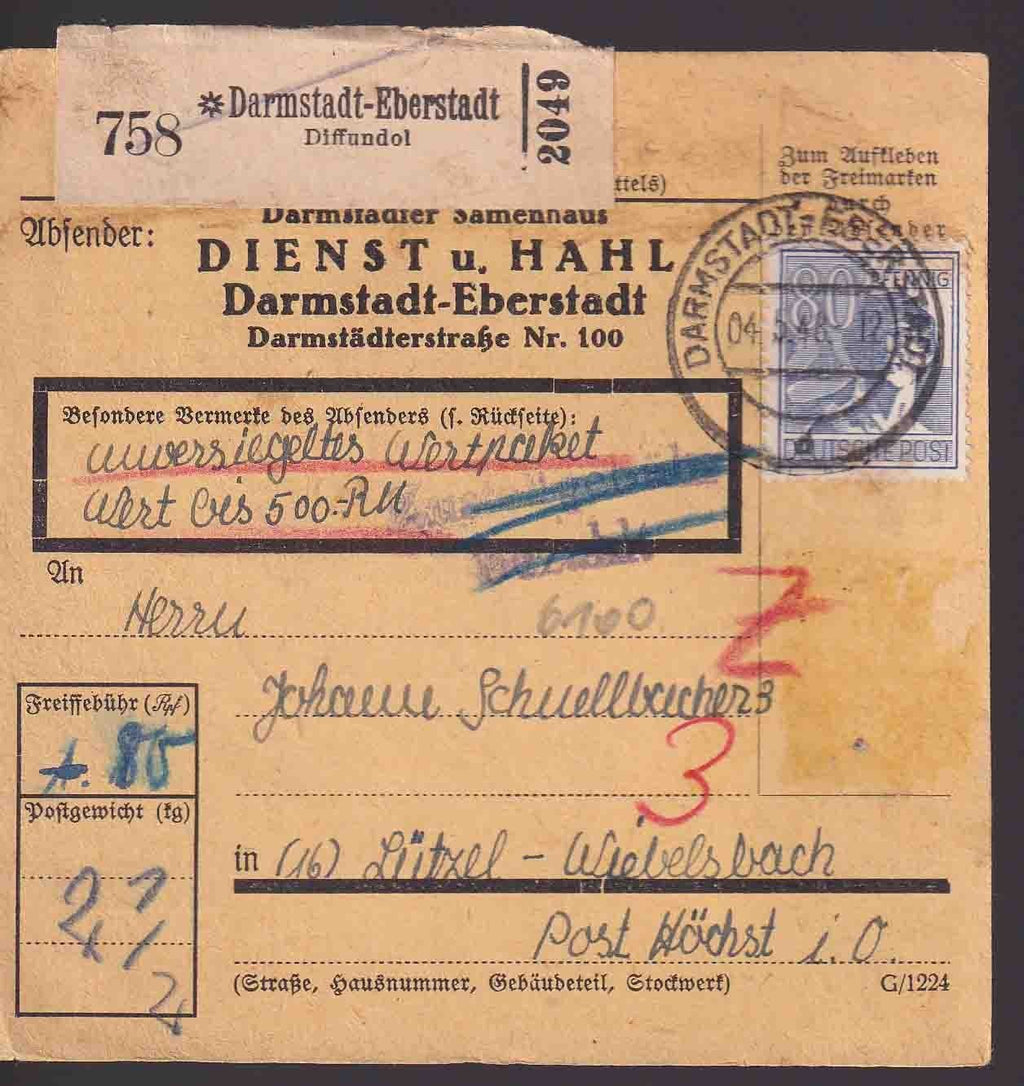 758
*Darmstadt-Eberstadt
Diffundol
2049
ttels)
Zum Aufkleben
der Freimarken
durch
Absender:
Darmstädter Samenhaus
DIENST u. HAHL
Darmstadt-Eberstadt
Darmstädterstraße Nr. 100
DARMSTADT-EBERSTADT
80 PFENNIG
DEUTSCHE POST
Besondere Vermerke des Absenders (s. Rückseite):
unversiegeltes Wertpaket
Wert bis 500.-RM
An
Herrn
6160
Z
Johann Schnellbacher 3
3
Freigebühr (Rpf)
80
Postgewicht (kg)
2 1/2
in (16) Lützel - Wiebelsbach
Post Höchst i. O.
(Straße, Hausnummer, Gebäudeteil, Stockwerk)
G/1224